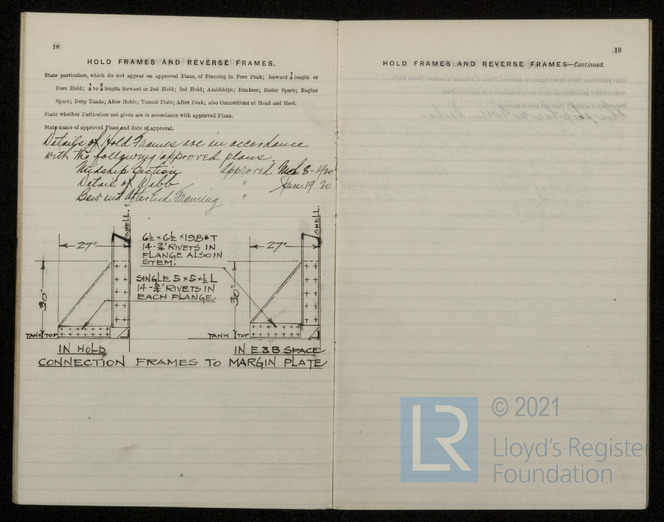 18
HOLD FRAMES AND REVERSE FRAMES.
State particulars, which do not appear on approved Plans, of Framing in Fore Peak; forward 1/5 length or
Fore Hold; 1/5 to 2/5 length forward or 2nd Hold; 3rd Hold; Amidships; Bunkers; Boiler Space; Engine
Space; Deep Tanks; After Holds; Tunnel Flats; After Peak; also Connections at Head and Heel.
State whether Particulars not given are in accordance with approved Plans.
State name of approved Plans and date of approval.
Details of Hold Frames are in accordance
with the following approved plans.
Midship Section Approved Mch 8-1920
Detail of Webb " June 19 20
Bow and After End Framing "
SHELL
SHELL
27"
6½ × 6½ × 19.8# T
14-¾" RIVETS IN
FLANGE ALSO IN
STEM.
27"
SINGLE 5 × 5 × ½ L
14-¾" RIVETS IN
EACH FLANGE
30"
30"
TANK TOP
TANK TOP
IN HOLD
IN E & B SPACE
CONNECTION FRAMES TO MARGIN PLATE
19
HOLD FRAMES AND REVERSE FRAMES—Continued.
LR
© 2021
Lloyd's Register
Foundation